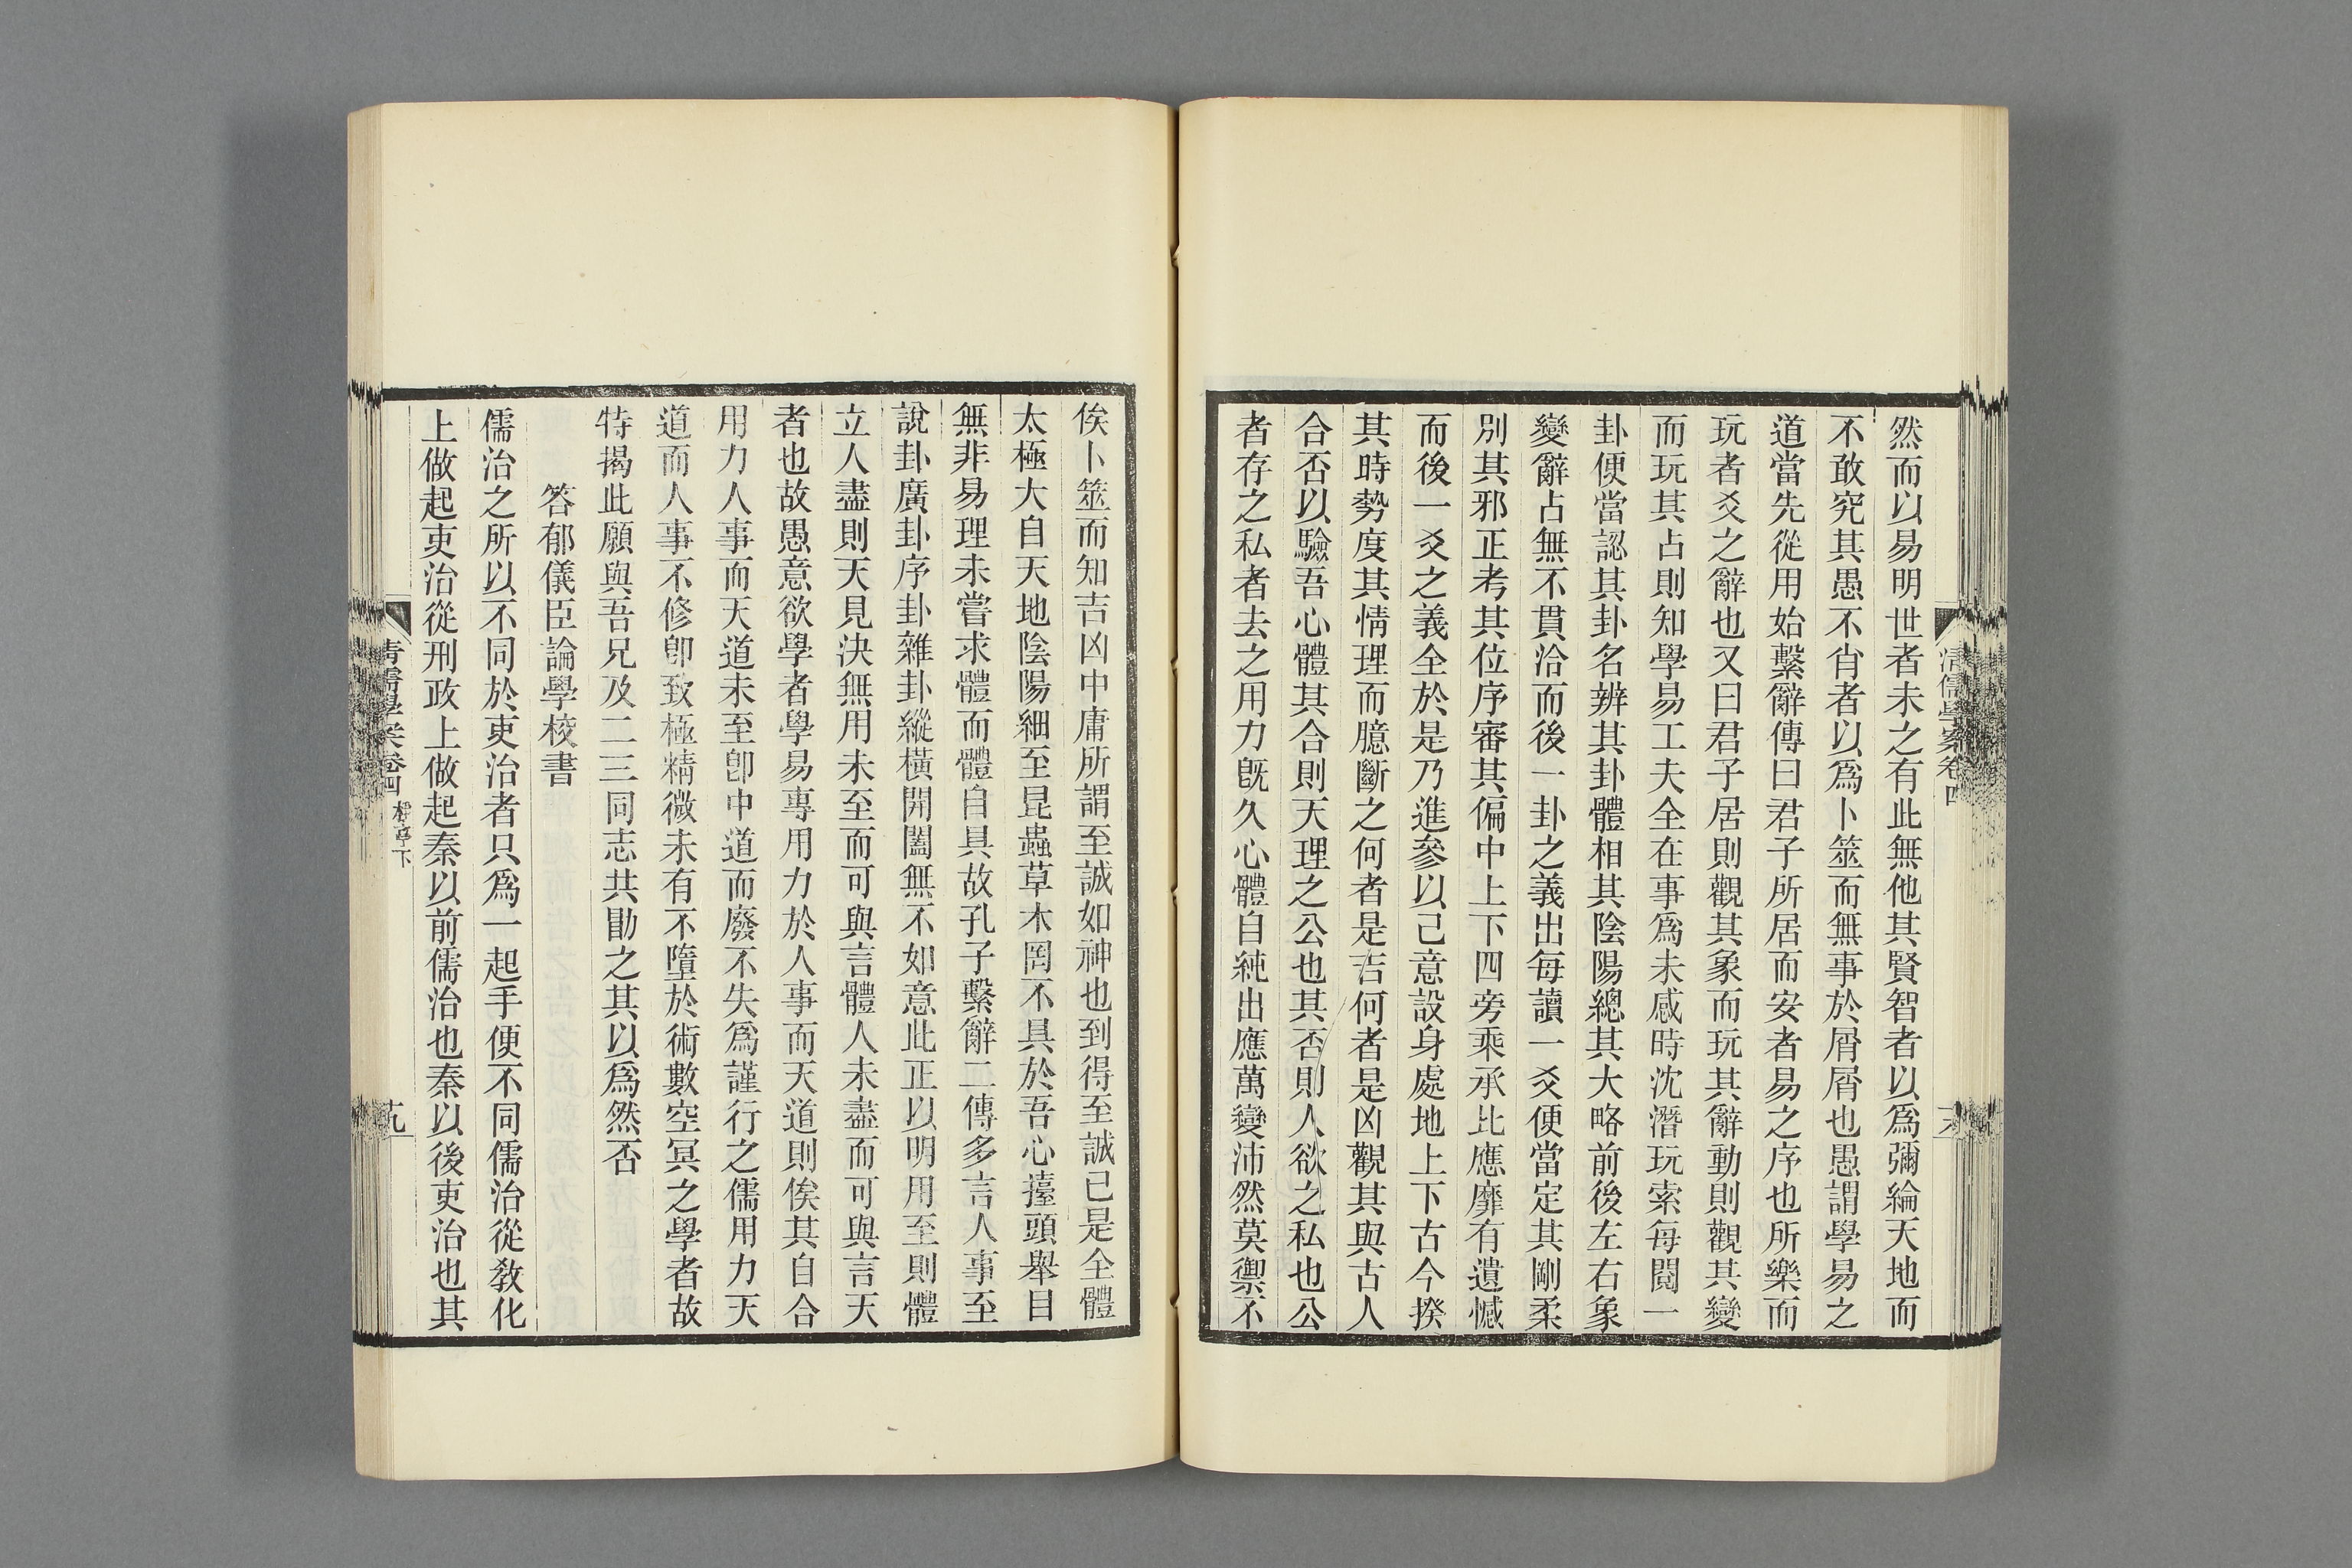 然而以易明世者未之有此無他其賢智者以爲彌綸天地而
不敢究其愚不肖者以爲卜筮而無事於屑屑也愚謂學易之
道當先從用始繫辭傳曰君子所居而安者易之序也所樂而
玩者爻之辭也又曰君子居則觀其象而玩其辭動則觀其變
而玩其占則知學易工夫全在事爲未感時沈潛玩索每閱一
卦便當認其卦名辨其卦體相其陰陽總其大略前後左右象
變辭占無不貫洽而後一卦之義出每讀一爻便當定其剛柔
別其邪正考其位序審其偏中上下四旁乘承比應靡有遺憾
而後一爻之義全於是乃進參以己意設身處地上下古今揆
其時勢度其情理而臆斷之何者是吉何者是凶觀其與古人
合否以驗吾心體其合則天理之公也其否則人欲之私也公
者存之私者去之用力旣久心體自純出應萬變沛然莫禦不
清儒學案卷四
俟卜筮而知吉凶中庸所謂至誠如神也到得至誠已是全體
太極大自天地陰陽細至昆蟲草木罔不具於吾心擡頭舉目
無非易理未嘗求體而體自具故孔子繫辭二傳多言人事至
說卦廣卦序卦雜卦縱橫開闔無不如意此正以明用至則體
立人盡則天見決無用未至而可與言體人未盡而可與言天
者也故愚意欲學者學易專用力於人事而天道則俟其自合
用力人事而天道未至卽中道而廢不失爲謹行之儒用力天
道而人事不修卽致極精微未有不墮於術數空冥之學者故
特揭此願與吾兄及二三同志共勖之其以爲然否
答郁儀臣論學校書
儒治之所以不同於吏治者只爲一起手便不同儒治從敎化
上做起吏治從刑政上做起秦以前儒治也秦以後吏治也其
清儒學案卷四 桴亭下 十九